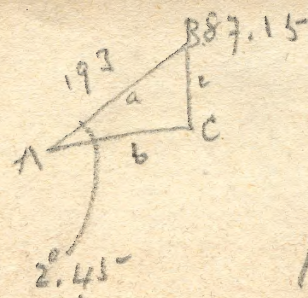 B 87.15
193
a
c
A
C
b
2°.45